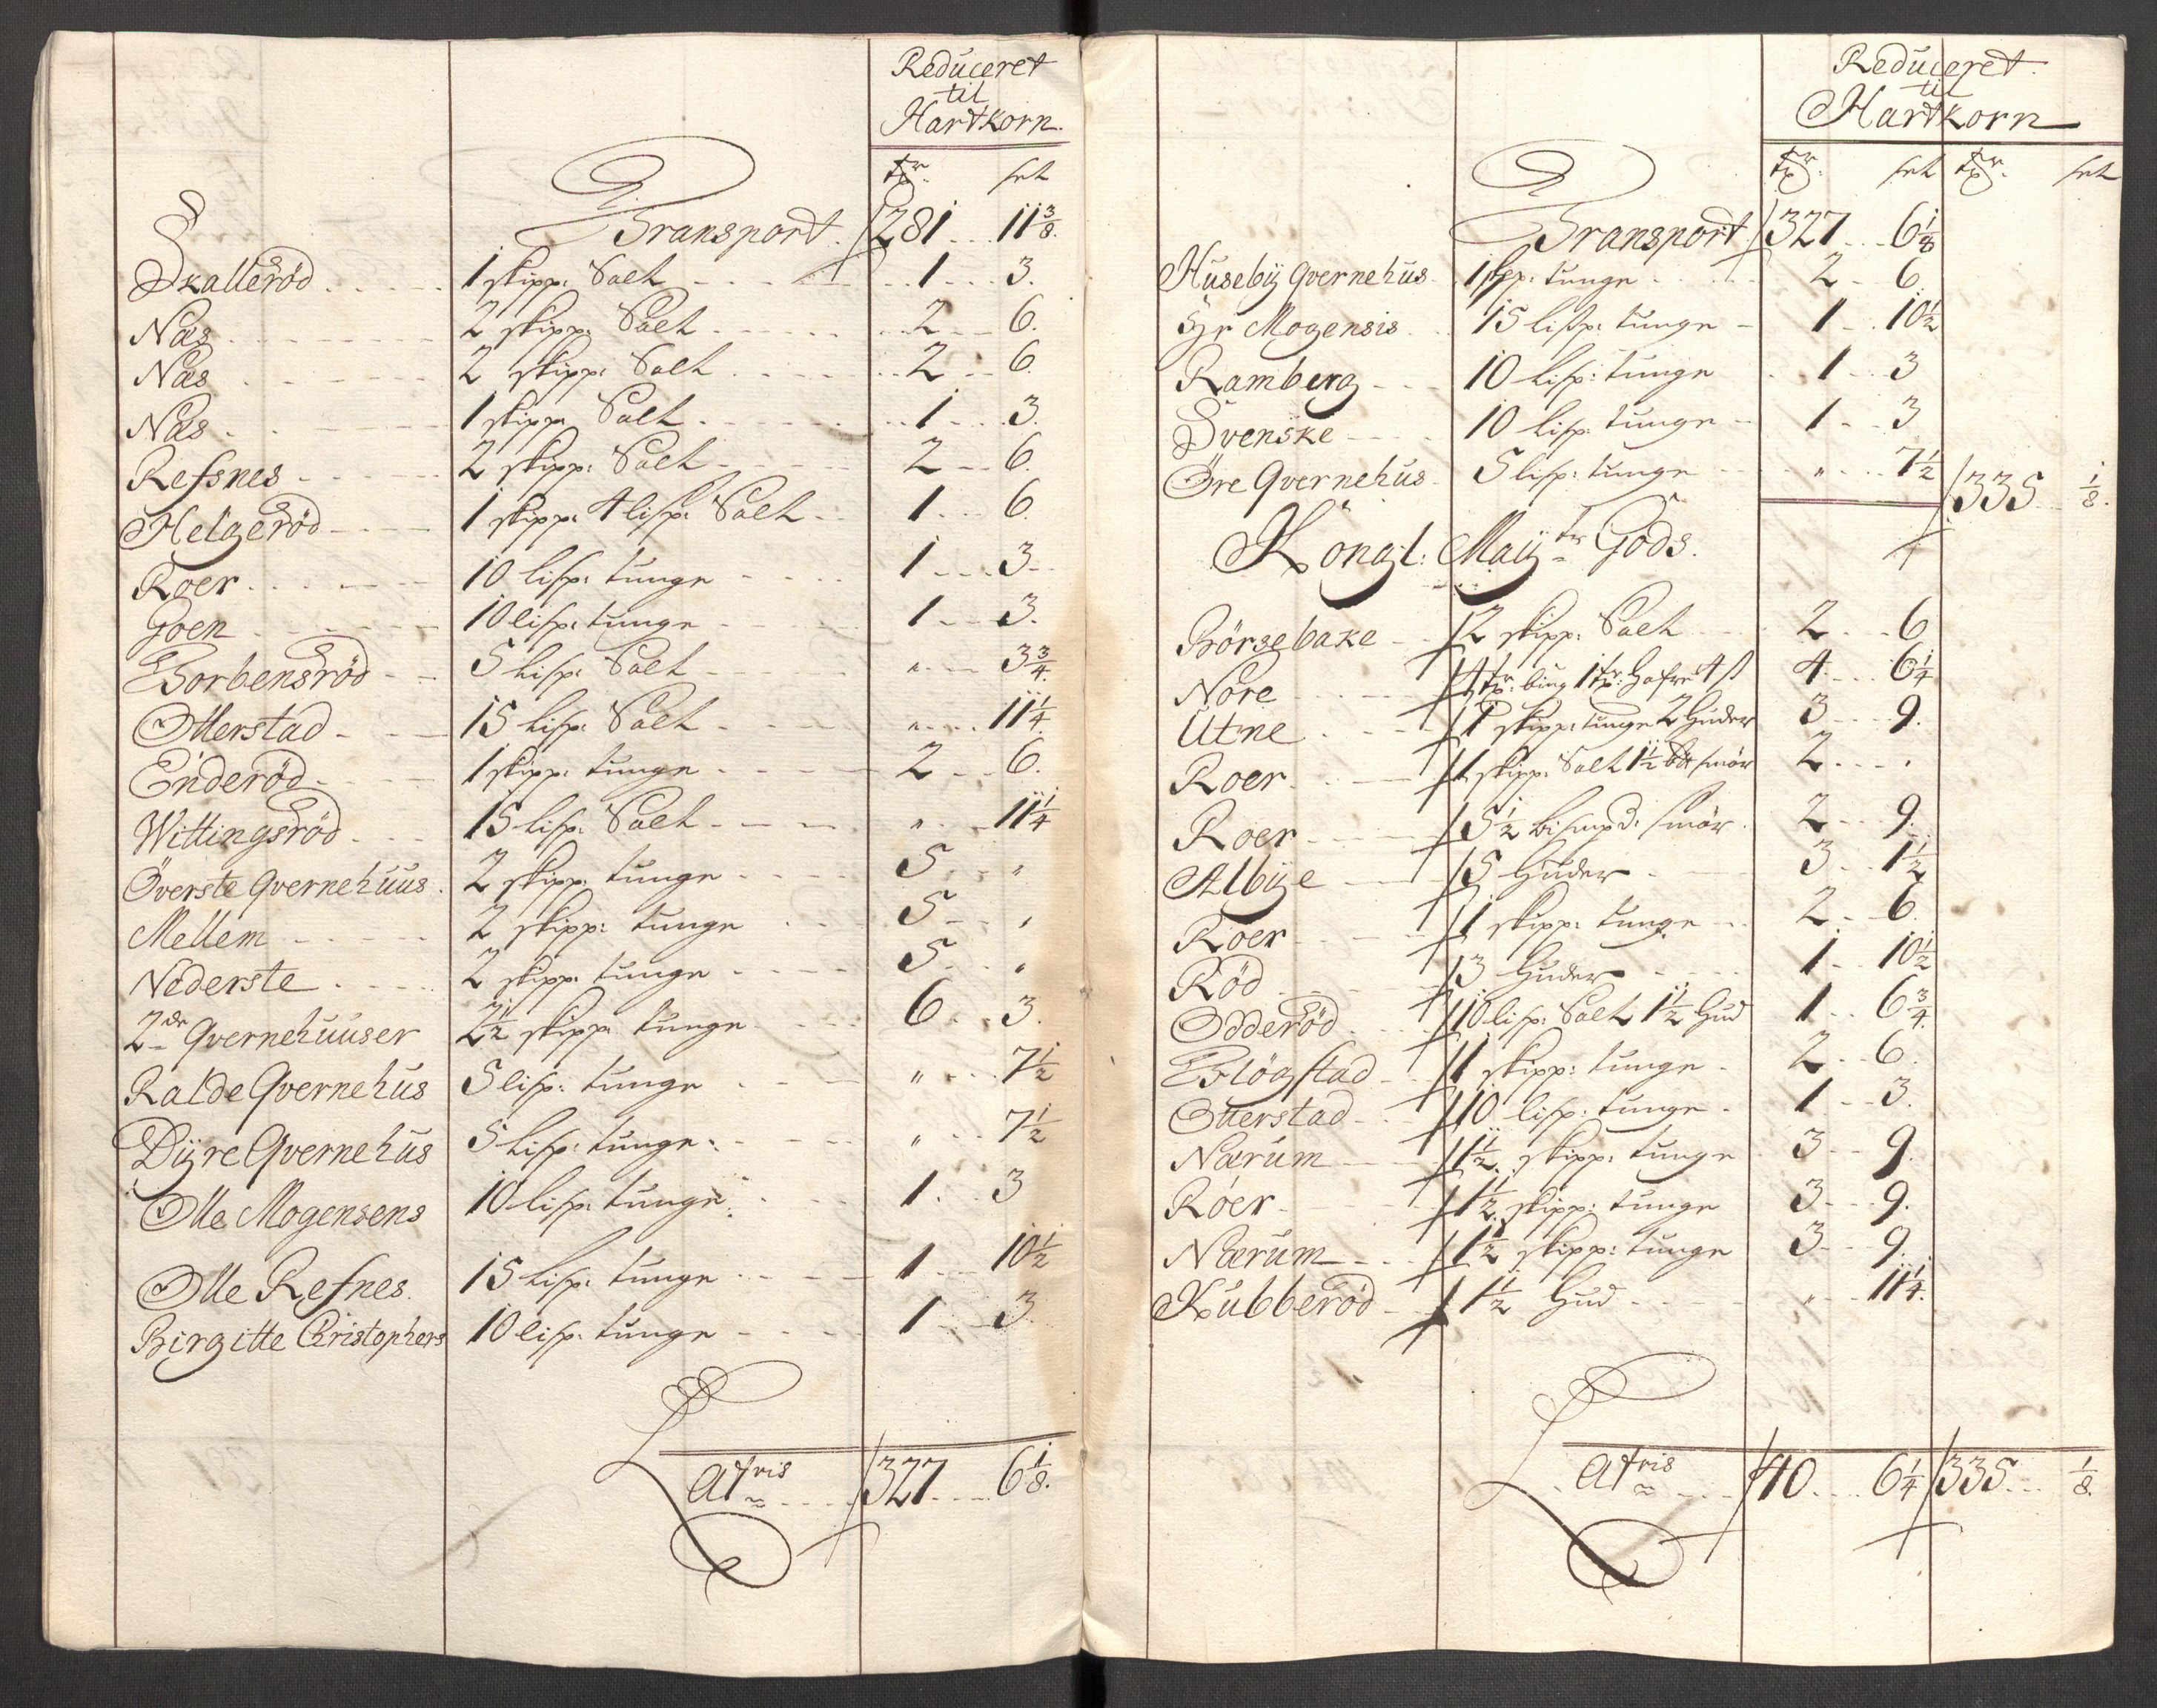 Reduceret
til
Hartkorn.
tr. set
Transport. 281 11 3/8.
Skalleröd 1 skipp: Salt 1 3.
Næs 2 skipp: Salt 2 6.
Næs 2 skipp: Salt 2 6.
Næs 1 skipp: Salt 1 3.
Refsnes 2 skipp: Salt 2 6.
Helgeröd 1 skipp: 4 lisp: Salt 1 6.
Roer 10 lisp: tunge 1 3
Goen 10 lisp: tunge 1 3.
Torbensröd 5 lisp: Salt " 3 3/4.
Otterstad 15 lisp: Salt " 11 1/4.
Enderöd 1 skipp: tunge 2 6.
Wittingsröd 15 lisp: Salt " 11 1/4
Överste Qvernehuus 2 skipp: tunge 5 "
Mellem 2 skipp: tunge 5 "
Nederste 2 skipp: tunge 5 "
2de Qvernehuuser 2 1/2 skipp: tunge 6 3.
Ralde Qvernehus 5 lisp: tunge " 7 1/2
Dyre Qvernehus 5 lisp: tunge " 7 1/2
Olle Mogensens 10 lisp: tunge 1 3
Olle Refnes. 15 lisp: tunge 1 10 1/2
Birgitte Christophers 10 lisp: tunge 1 3.
Latris 327 6 1/8.
Reduceret
til
Hartkorn
tr. set tr. set
Transport 327 6 1/8
Huseby Qvernehus 1 skp: tunge 2 6
Hr Mogensis 15 lisp: tunge 1 10 1/2
Ramberg 10 lisp: tunge 1 3
Svenske 10 lisp: tunge 1 3
Öre Qvernehus 5 lisp: tunge " 7 1/2 335 1/8.
Köngl: Mayts Gods.
Börsebake 2 skipp: Salt 2 6
Nore 4 tr: biug 1 tr: Hafre 4 s 4 6 1/4
Utne 1 skipp: tunge 2 Huder 3 9.
Roer 1 skipp: Salt 1 1/2 smör 2 .
Roer 5 1/2 bismpd: smör 2 9.
Albye 5 Huder 3 1 1/2
Roer 1 skipp: tunge 2 6.
Röd 3 Huder 1 10 1/2
Odderöd 10 lisp: Salt 1 1/2 Hud 1 6 3/4.
Tlögstad 1 skipp: tunge 2 6.
Otterstad 10 lisp: tunge 1 3.
Nærum 1 1/2 skipp: tunge 3 9.
Röer 1 1/2 skipp: tunge 3 9.
Nærum 1 1/2 skipp: tunge 3 9.
Kubberöd 1 1/2 Hud " 11 1/4.
Latris 40 6 1/4 335 1/8.